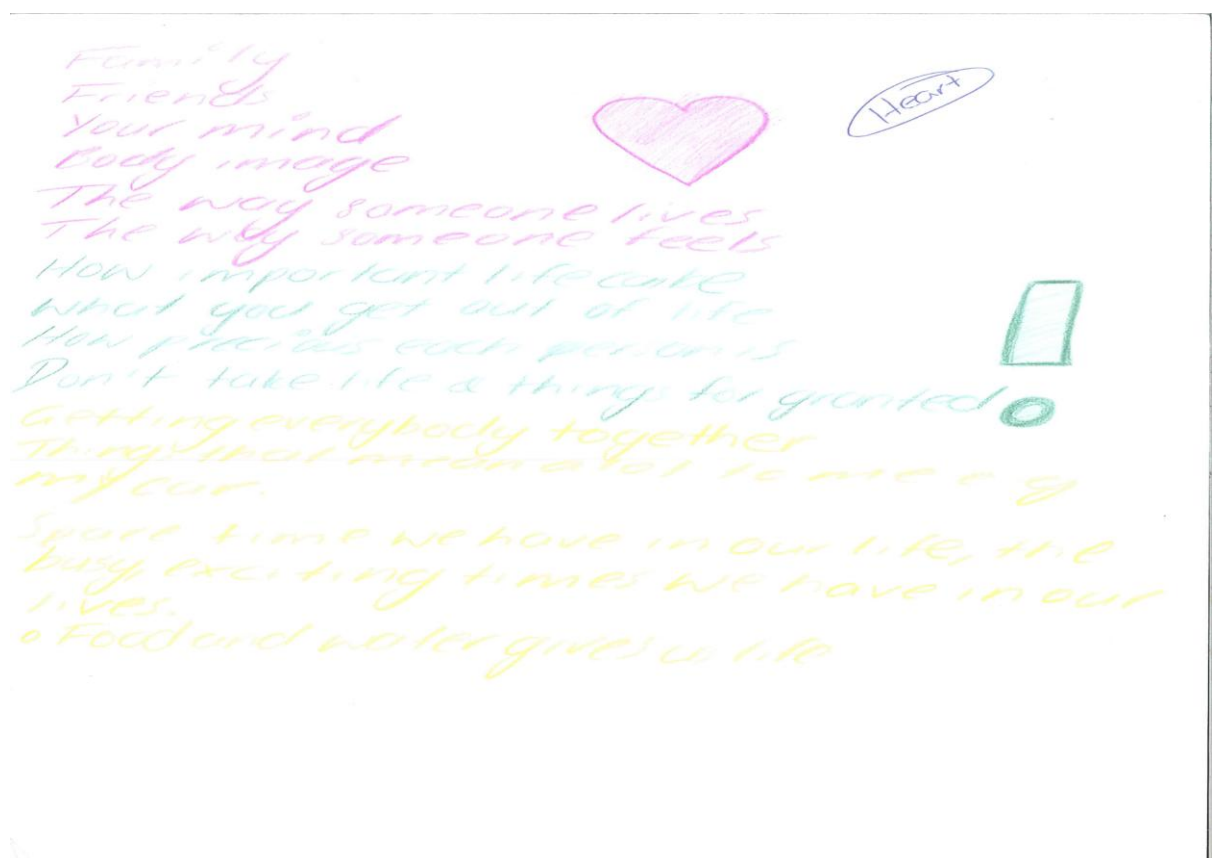 Family
Friends
Your mind
Body image
The way someone lives
The way someone feels
Heart
How important life
What you get out of life
How precious each person is
Don't take life & things for granted
Getting everybody together
Things that mean a lot to me eg
my car.
Spare time we have in our life, the
busy, exciting times we have in our
lives.
• Food and water gives us life